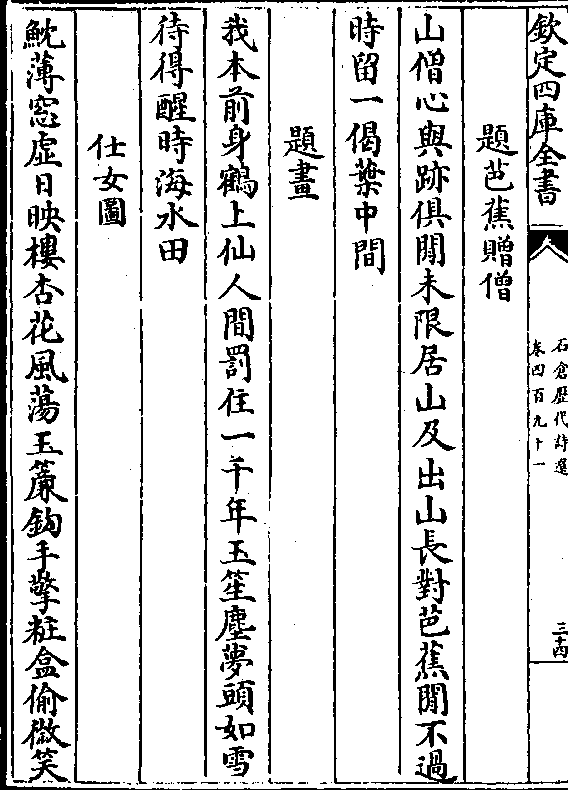 欽定四庫全書
石倉歷代詩選
卷四百九十一
三十四
題芭蕉贈僧
山僧心與跡俱閒未限居山及出山長對芭蕉閒不過
時留一偈葉中間
題畫
我本前身鶴上仙人間罰住一千年玉笙塵夢頭如雪
待得醒時海水田
仕女圖
魫薄窓虛日映樓杏花風蕩玉簾鈎手擎粧盒偷微笑